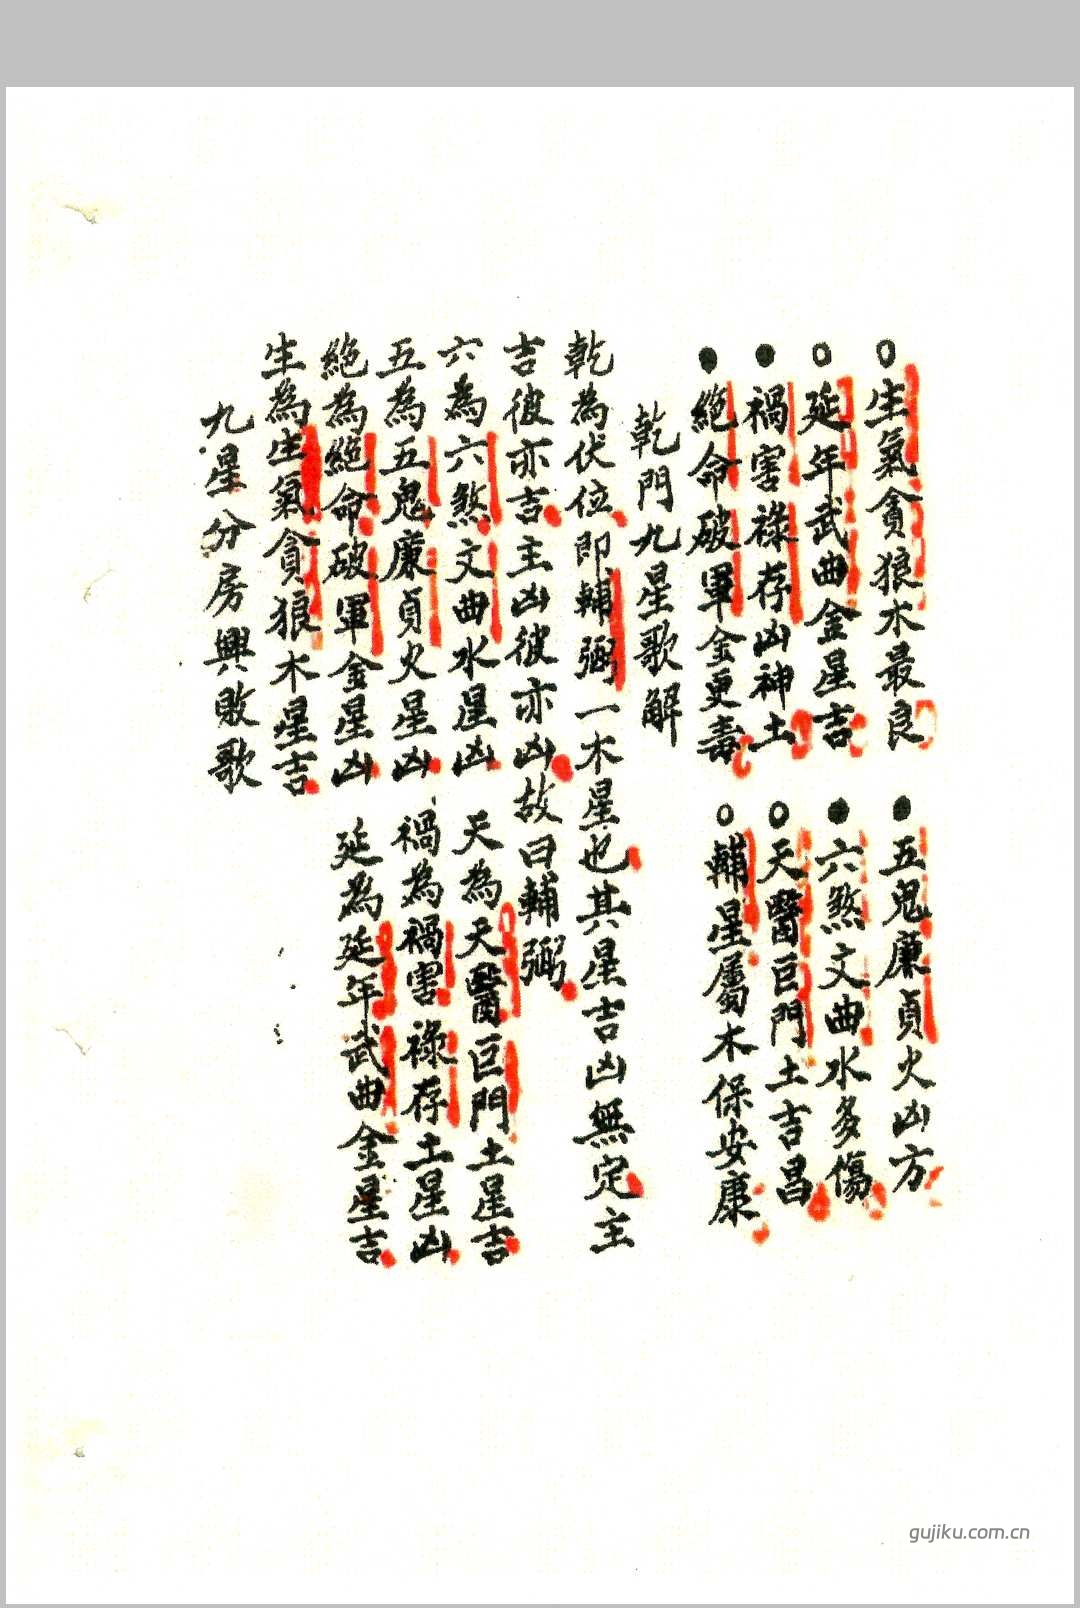 ○生氣貪狼木最良　●五鬼廉貞火凶方
○延年武曲金星吉　●六煞文曲水多傷
●禍害祿存凶神土　○天醫巨門土吉昌
●絕命破軍金更毒　○輔星屬木保安康
乾門九星歌解
乾為伏位即輔弼一木星也其星吉凶無定主
吉彼亦吉主凶彼亦凶故曰輔弼
六為六煞文曲水星凶　天為天醫巨門土星吉
五為五鬼廉貞火星凶　禍為禍害祿存土星凶
絕為絕命破軍金星凶　延為延年武曲金星吉
生為生氣貪狼木星吉
九星分房興敗歌
gujiku.com.cn